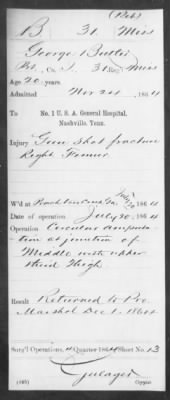 (Rebs)
B 31 Miss
George Butler
Pvt, Co. I, 31 Reg't Miss
Age 20 years.
Admitted Nov 24, 1864
To No. 1 U. S. A. General Hospital,
Nashville, Tenn.
Injury Gun Shot fracture
Right Femur
W'd at Peach Tree Creek Ga. July 20, 1864
Date of operation July 20, 1864
Operation Circular amputa-
tion at junction of
Middle with upper
third Thigh
Result Returned to Pro.
Marshal Dec 1, 1864
Surg'l Operations, 4 Quarter 1864 Sheet No. 13
Copyist.